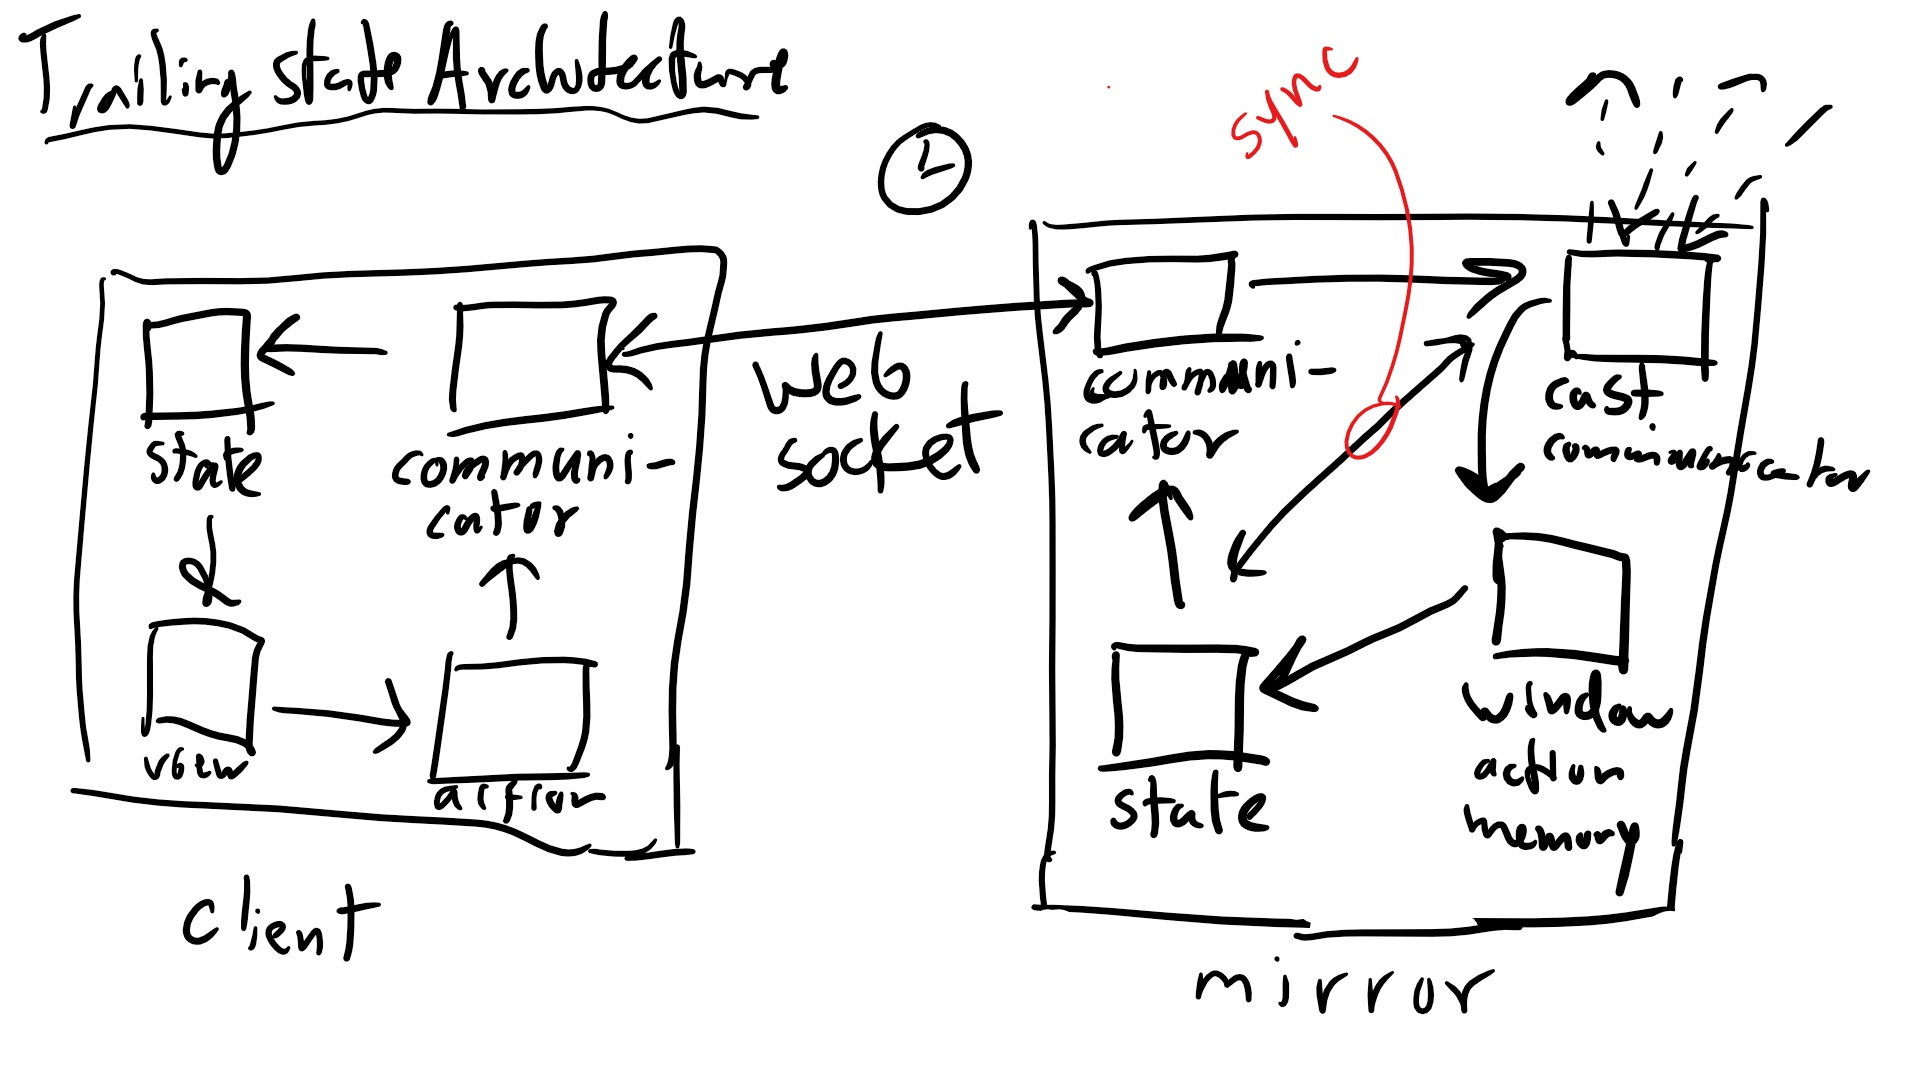 Trailing State Architecture
sync
state
communi-
cator
view
action
client
web
socket
communi-
cator
cast
communicator
state
window
action
memory
mirror